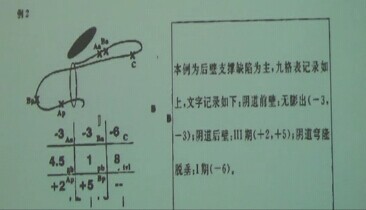 例2
Aa Ba
C
Bp
Ap
-3 Aa -3 Ba -6 C
4.5 gh 1 pb 8 tvl
+2 Ap +5 Bp --
本例为后壁支撑缺陷为主,九格表记录如
上,文字记录如下:阴道前壁:无膨出(-3,
-3);阴道后壁:III期(+2,+5);阴道穹隆
脱垂:I期(-6)。